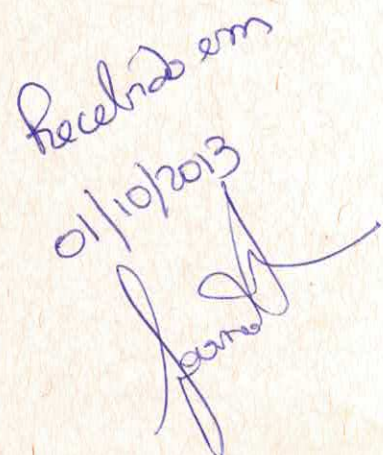 Recebido em
01/10/2013